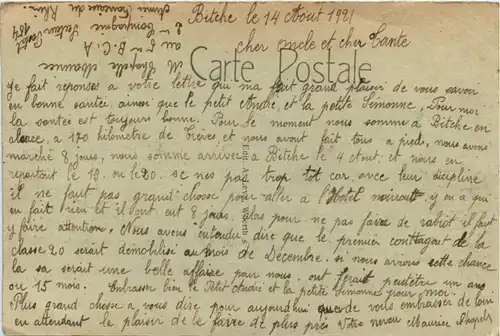 Bitche le 14 Aout 1921
cher oncle et cher Tante
Mr Chapelle Maurice
au 5me B.C.A
2me Compagnie Secteur Postal 184
Armée Française du Rhin.
Carte Postale
Je fait réponses a votre lettre qui ma fait grand plaisir de vous savoir
en bonne santée, ainsi que le petit André, et la petite Simonne, Pour moi
la santée est toujours bonne. Pour le moment nous somme à Bitche en
alsace, a 170 kilomètre de Trèves et nous avont fait tous a pied, nous avons
marché 8 jours, nous somme arriver a Bitche le 4 Aout, et nous en
repartont le 19. ou le 20. se nes pas trop tot car, avec leur discipline
il ne faut pas grand chose pour aller a l'Hotel noiraut, y en a qui
en fait rien et il lont eut 8 jours. Alors pour ne pas faire de rabiot il faut
y faire attention, Nous avons entendu dire que le premier conttagant de la
classe 20 serait démobilisé au mois de Decembre. si nous avions cette chance
la sa serait une belle affaire pour nous, ont ferait peutètre un ans
ou 15 mois. Embrasser bien le Petit André et la petite Simonne pour moi.
Plus grand chose a vous dire pour aujourd'hui que de vous embrasser de loin
en attendant le plaisir de le faire de plus près Votre neveu Maurice
Edit. Ad. Leyenwerth's